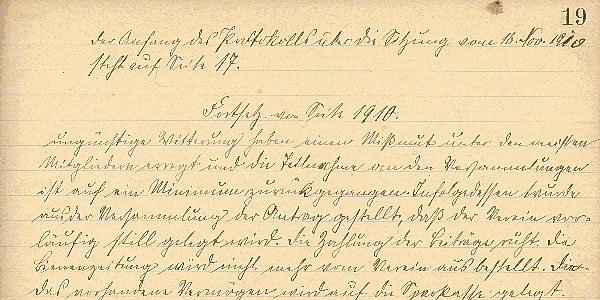 19
Der Anfang des Protokolls über die Sitzung vom 16. Nov. 1910
steht auf Seite 17.
Fortsetz. von Seite 1910.
ungünstige Witterung haben einen Mißmut unter den meisten
Mitgliedern erregt und die Teilnahme an den Versammlungen
ist auf ein Minimum zurückgegangen. Infolgedessen wurde
aus der Versammlung der Antrag gestellt, daß der Verein vor-
läufig still gelegt wird. Die Zahlung der Beiträge ruht. Die
Bienenzeitung wird nicht mehr vom Verein aus bestellt. Die
das vorhandene Vermögen wird auf die Sparkasse gelegt.